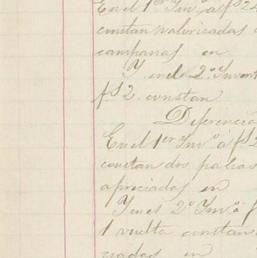 En el 1er Invo. á fs 2
constan valorizadas
campanas en
Y en el 2o Invent
fs 2 constan
Diferencia
En el 1er Invo. á fs
constan dos palias
apreciadas en
Y en el 2o Invo. á f
1 vuelta constan
en